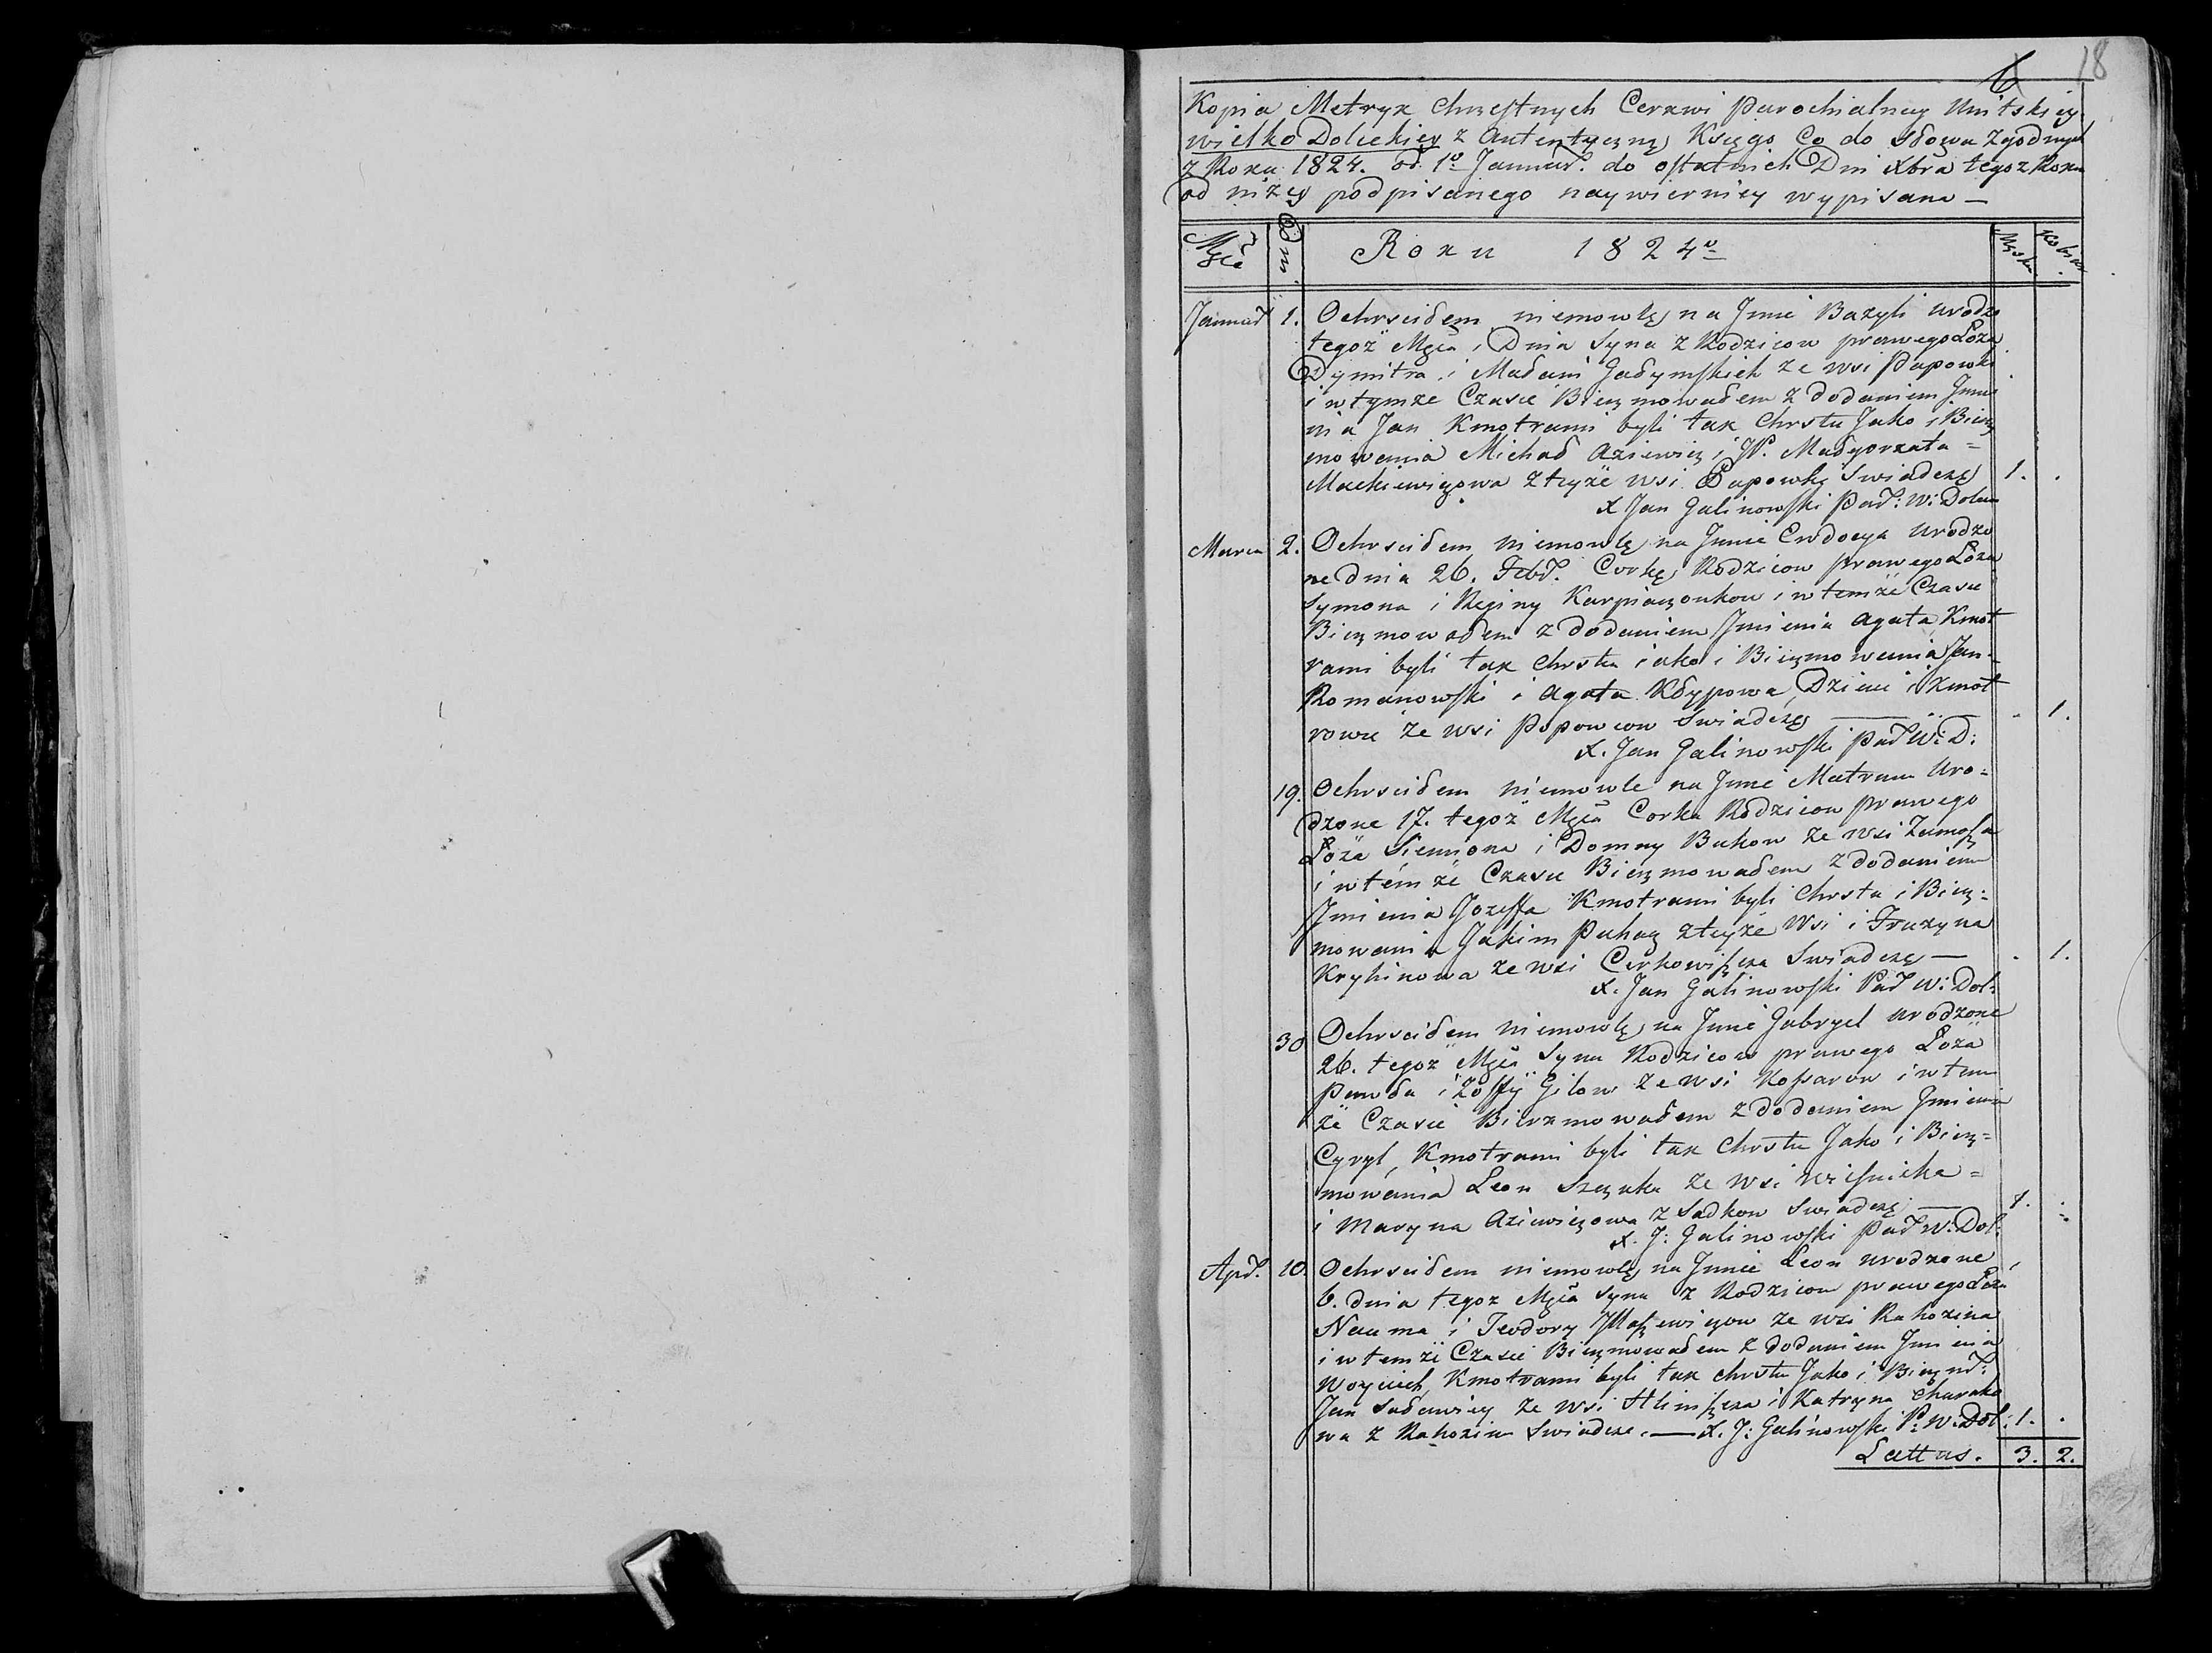 18
6
Kopia Metryk Chrzestnych Cerkwi Parochialney Unitskiey
wielko Dolickiey z Autentyczną Księgo Co do Słowa zgodnych
z Roku 1824. od 1º Januar. do ostatnich Dni Xbra tegoz Roku
od niżey podpisanego naywierniey wypisana —
Mca Dni Roku 1824º Męska Kobie
Januar 1. Ochrsciłem niemowlę na Jmie Bazyli urodzo
tegoż Mca i Dnia Syna z Rodzicow prawego Łoża
Dymitra i Małani Gadymskich ze wsi Papowki
i w tymze Czasie Bierzmowałem z dodaniem Jmie
nia Jan Kmotrami byli tak Chrstu Jako i Bierz
mowania Michał Aziewicz i JP. Małgorzata =
Mackiewiczowa z teyże wsi Papowki Swiadczę 1. .
X Jan Galinowski Par: W: Dolec
Marca 2. Ochrsciłem niemowlę na Jmie Ewdocya Urodzo
ne dnia 26. Febr. Corkę Rodzicow prawego Łoża
Symona i Reginy Karpiaczonkow i w temże Czasie
Bierzmowałem z dodaniem Jmienia Agata Kmot
rami byli tak Chrstu iako i Bierzmowania Jan
Romanowski i Agata Kłypowa Dzieci i Kmot
rowie ze wsi Popowcow Swiadczę — . 1.
X. Jan Galinowski Par W: D:
19. Ochrsciłem niemowle na Jmie Matruna Uro=
dzone 17. tegoż Mca Corka Rodzicow prawego
Łoża Siemiona i Domny Bukow ze wsi Zamosza
i w tém że Czasie Bierzmowałem z dodaniem
Jmienia Jozeffa Kmotrami byli Chrsta i Bierz=
mowania Jakim Puhacz z teyże Wsi i Fruzyna
Kryhinowa ze wsi Cerkowiszcza Swiadczę — . 1.
X. Jan Galinowski Par W: Dol:
30 Ochrsciłem niemowlę na Jmie Gabryel urodzone
26. tegoż Mca Syna Rodzicow prawego Łoża
Pawła i Zoffy Gilow ze wsi Kosarow i w tem
że Czasie Bierzmowałem z dodaniem Jmienia
Cyryl, Kmotrami byli tak Chrstu Jako i Bierz=
mowania Leon Szczuka ze Wsi Wisnicka =
i Maryna Aziewiczowa z Sadkow Swiadczę — 1. .
X. J: Galinowski Par W: Dol:
Apr. 10. Ochrsciłem niemowlę na Jmie Leon urodzone
6. dnia tegoz Mca Syna z Rodzicow prawego Łoża
Nauma i Teodory ze wsi Rahozina
i w temże Czasie Bierzmowałem z dodaniem Jmienia
Woyciech, Kmotrami byli tak chrstu Jako i Bierzm:
Jan Sadawiczy ze wsi Hliniszcza i Katryna Charako
wa z Rahozin Swiadcze. — X. J: Galinowski P: W: Dol: 1. .
Lattus. 3. 2.